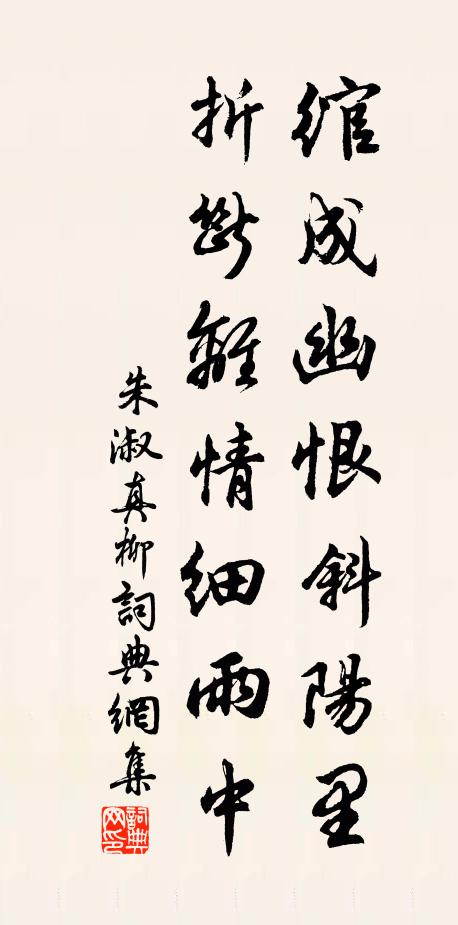 綰成幽恨斜陽里
折斷離情細雨中
朱淑真柳詞典網集
詞典網印